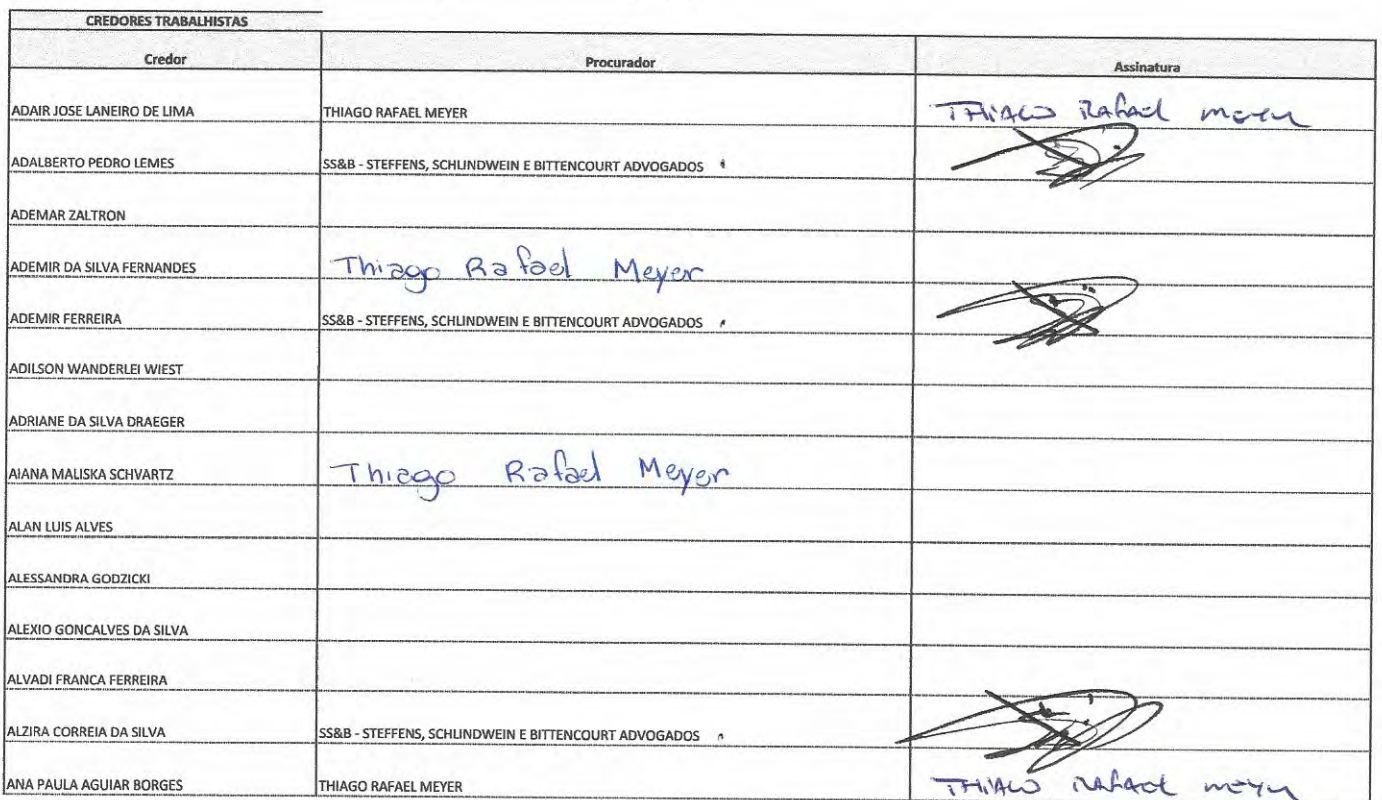 CREDORES TRABALHISTAS
Credor Procurador Assinatura
ADAIR JOSE LANEIRO DE LIMA THIAGO RAFAEL MEYER THIAGO Rafael meyer
ADALBERTO PEDRO LEMES SS&B - STEFFENS, SCHLINDWEIN E BITTENCOURT ADVOGADOS
ADEMAR ZALTRON
ADEMIR DA SILVA FERNANDES Thiago Rafael Meyer
ADEMIR FERREIRA SS&B - STEFFENS, SCHLINDWEIN E BITTENCOURT ADVOGADOS
ADILSON WANDERLEI WIEST
ADRIANE DA SILVA DRAEGER
AIANA MALISKA SCHVARTZ Thiago Rafael Meyer
ALAN LUIS ALVES
ALESSANDRA GODZICKI
ALEXIO GONCALVES DA SILVA
ALVADI FRANCA FERREIRA
ALZIRA CORREIA DA SILVA SS&B - STEFFENS, SCHLINDWEIN E BITTENCOURT ADVOGADOS
ANA PAULA AGUIAR BORGES THIAGO RAFAEL MEYER THIAGO Rafael meyer